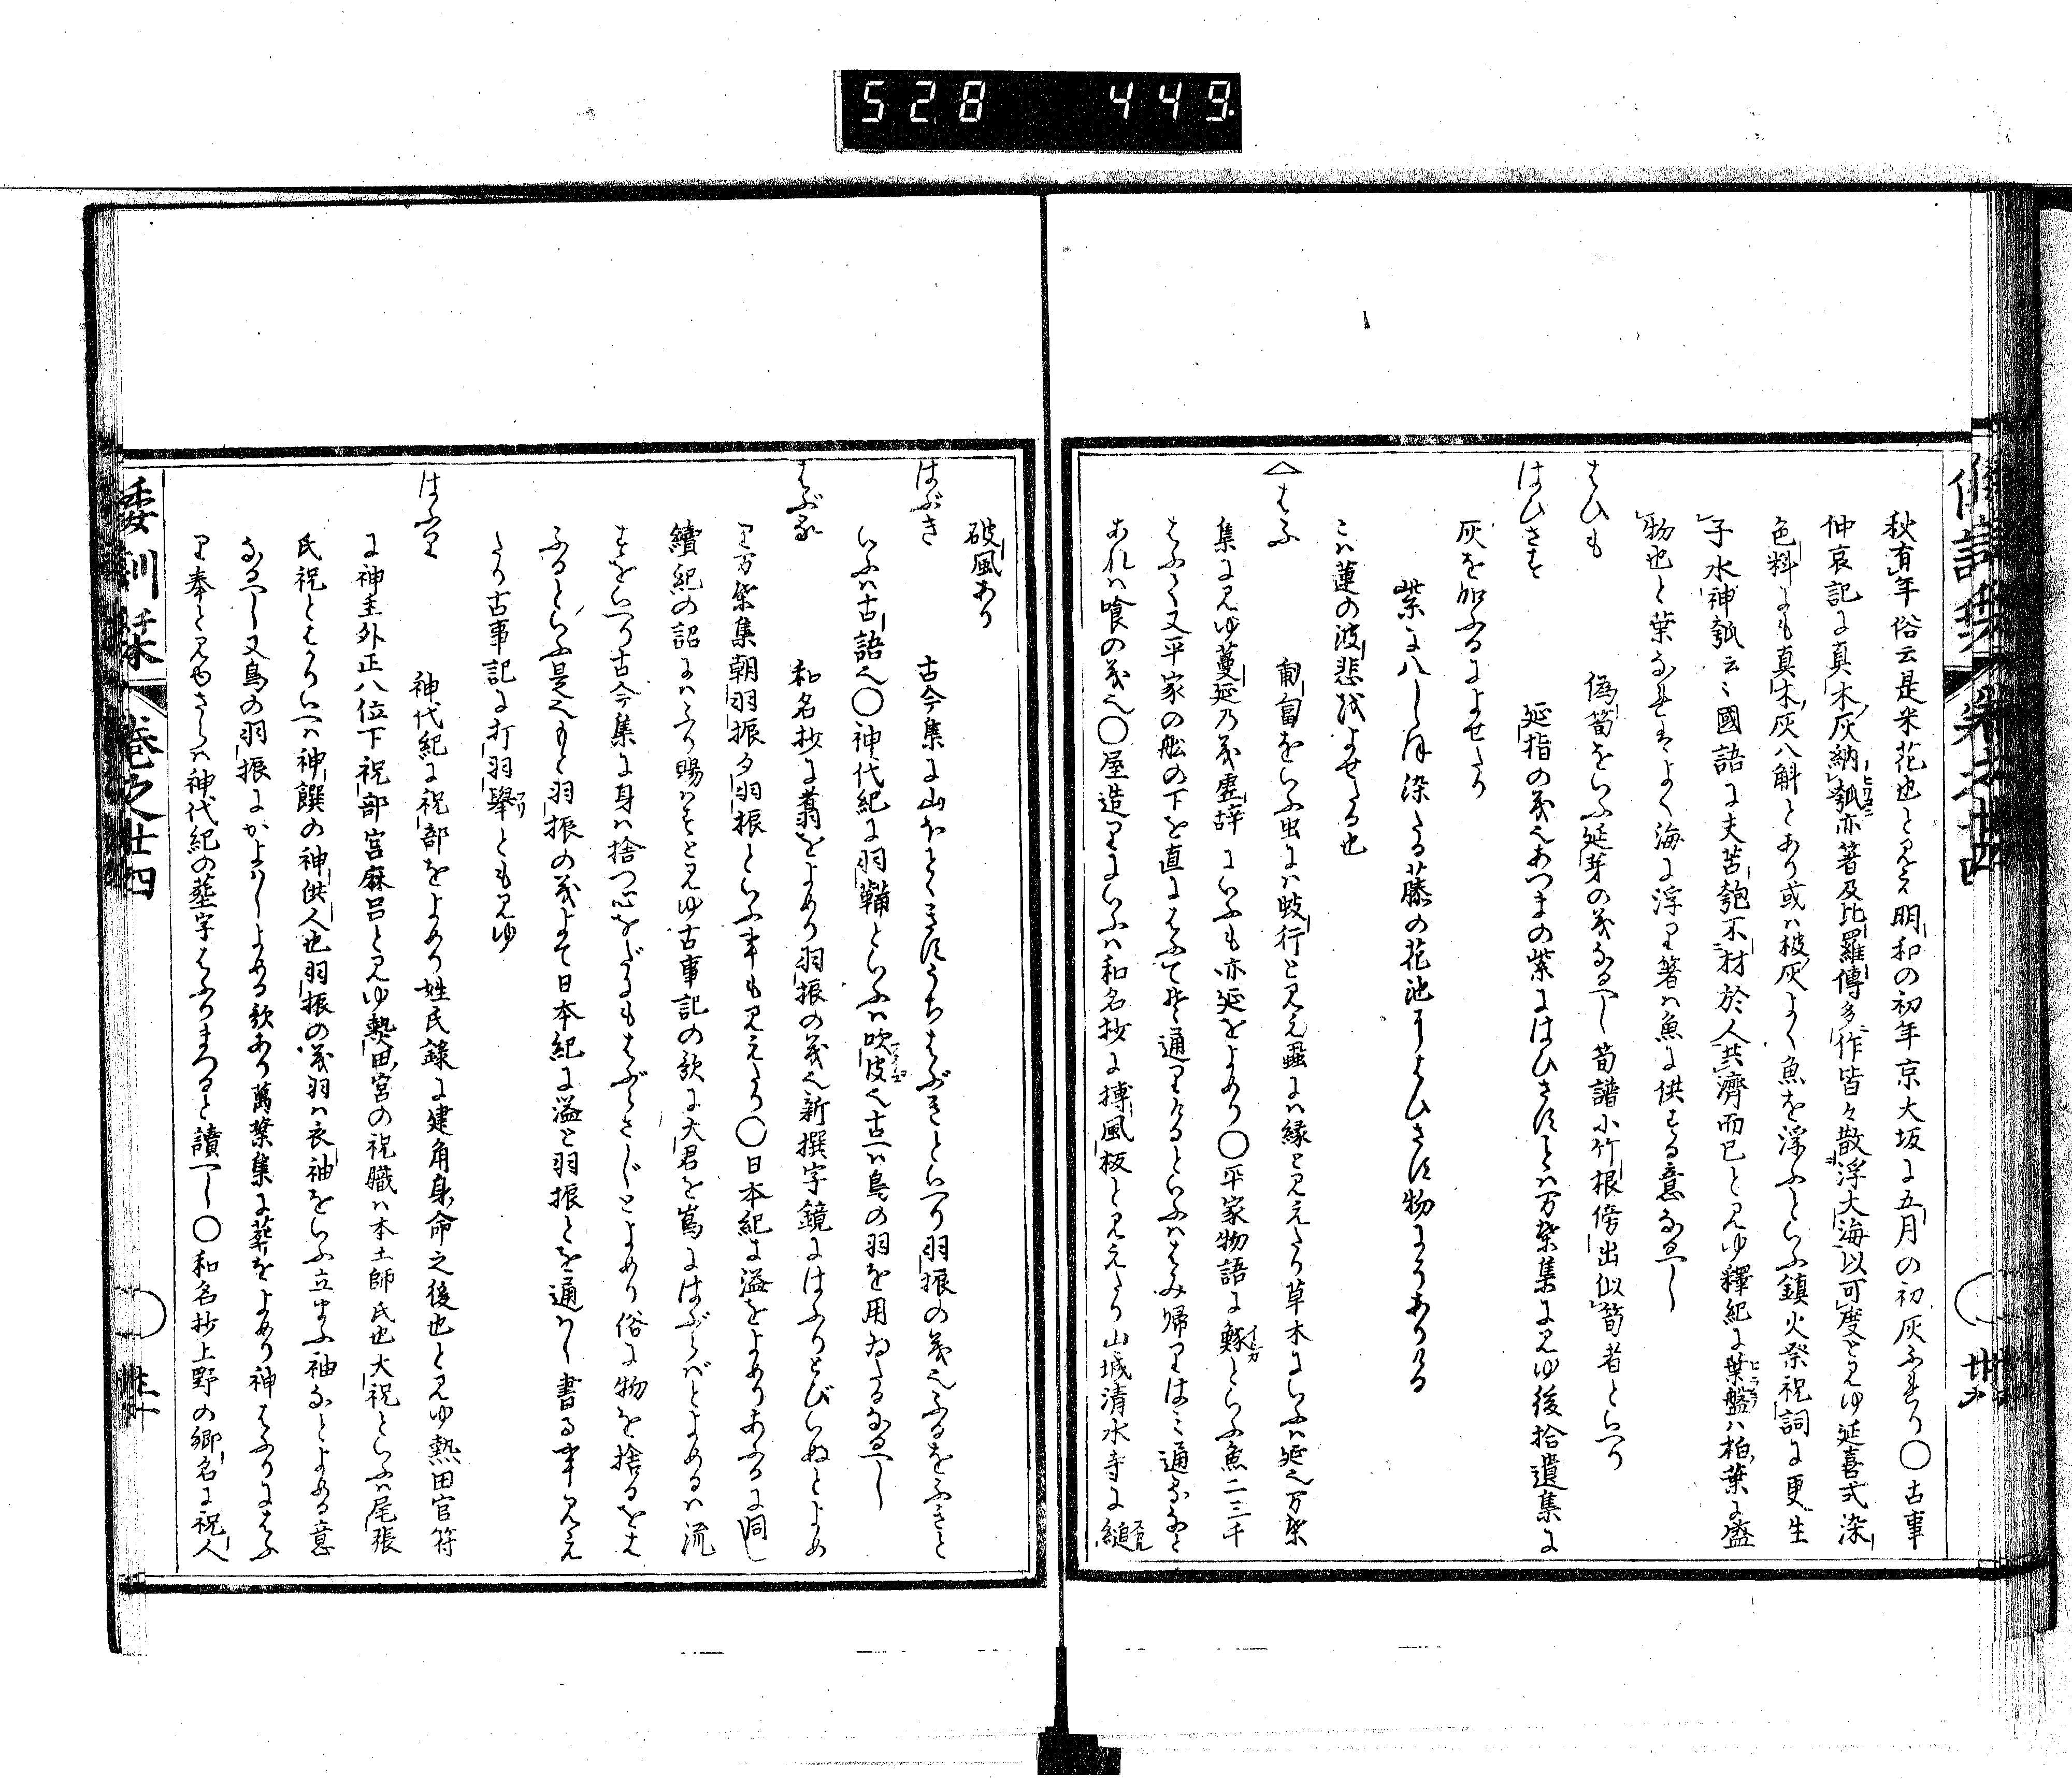 528 449
秋有年俗云是米花也と見え明和の初年京大坂に五月の初灰ふれり〇古事
仲哀記に真木灰納瓠亦箸及比羅傳多作皆々散浮大海以可度と見ゆ延喜式染
色料にも真木灰八斛とあり或は椒灰よく魚を浮ふといふ鎮火祭祝詞に更生
子水神瓠云々國語に夫苦匏不材於人共濟而已と見ゆ釋紀に葉盤は柏葉に盛
物也と葉なれはよく海に浮り箸は魚に供する意なるへし
はひも 偽筍をいふ延芽の義なるへし筍譜に竹根傍出似筍者といへり
はひさす 延指の義也あつまの紫にはひさすとは万葉集に見ゆ後拾遺集に
灰を加ふるによせたり
紫に八しほ染たる藤の花池にはひさす物にそありける
こは蓮の波悲によせたる也
△はふ 匍匐をいふ虫には蚑行と見え蝨には縁と見えたり草木にいふは延也万葉
集に見ゆ蔓延乃義虚辞にいふも亦延をよめり〇平家物語に鯨といふ魚二三千
はふく又平家の舩の下を直にはふて通りけるといふははみ帰りはみ通るなと
あれは喰の義也〇屋造りにいふは和名抄に搏風板と見えたり山城清水寺に縋
破風あり
はぶき 古今集に山ほとゝきすうちはぶきといへり羽振の義也ふるをふきと
いふは古語也〇神代紀に羽鞴といふは吹皮也古へは鳥の羽を用ゐたるなるへし
はぶる 和名抄に翥をよめり羽振の義也新撰字鏡にはふりとびいぬとよめ
り万葉集朝羽振夕羽振といふ事も見えたり〇日本紀に溢をよめりあふるに同し
續紀の詔にはふり賜はすと見ゆ古事記の歌に大君を嶌にはぶらばとよめるは流
すをいへり古今集に身は捨つ心をだにもはぶらさじとよめり俗に物を捨るをは
ふるといふ是也もと羽振の義よて日本紀に溢と羽振とを通はし書る事見え
たり古事記に打羽擧とも見ゆ
はふり 神代紀に祝部をよめり姓氏録に建角身命之後也と見ゆ熱田官符
に神主外正八位下祝部宮麻呂と見ゆ熱田宮の祝職は本土師氏也大祝といふは尾張
氏祝とはりいへは神饌の神供人也羽振の義羽は衣袖をいふ立まふ袖なとよめる意
なるへし又鳥の羽振にかよはしよめる歌あり萬葉集に葬をよめり神はふりにはふ
り奉と見ゆさらは神代紀の葬字はふりまつると讀へし〇和名抄上野の郷名に祝人
倭訓栞 巻之廿四